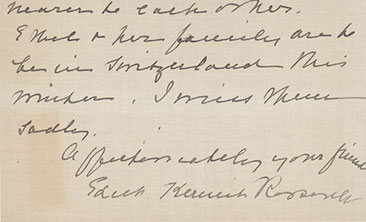 nearer to each other.
Ethel & her family are to
be in Switzerland this
winter. I miss them
sadly.
Affectionately your friend
Edith Kermit Roosevelt